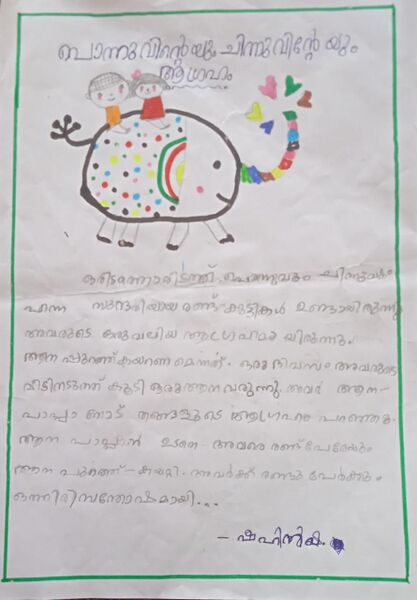 പൊന്നുവിന്റെയും ചിന്നുവിന്റേയും
ആഗ്രഹം
ഒരിടത്തൊരിടത്ത് പൊന്നുവും ചിന്നുവും
എന്ന സുന്ദരിയായ രണ്ട് കുട്ടികൾ ഉണ്ടായിരുന്നു
അവരുടെ ഒരുവലിയ ആഗ്രഹമായിരുന്നു.
ആന പ്പുറത്ത് കയറണമെന്നത്. ഒരു ദിവസം അവരുടെ
വീടിനടുത്ത് കൂടി ഒരു ആന വരുന്നു. അവർ ആന-
പാപ്പാനോട് തങ്ങളുടെ ആഗ്രഹം പറഞ്ഞു.
ആന പാപ്പാൻ ഉടനെ അവരെ രണ്ട് പേരേയും
ആന പുറത്ത് - കയറ്റി. അവർക്ക് രണ്ടു പേർക്കും
ഒത്തിരി സന്തോഷമായി...